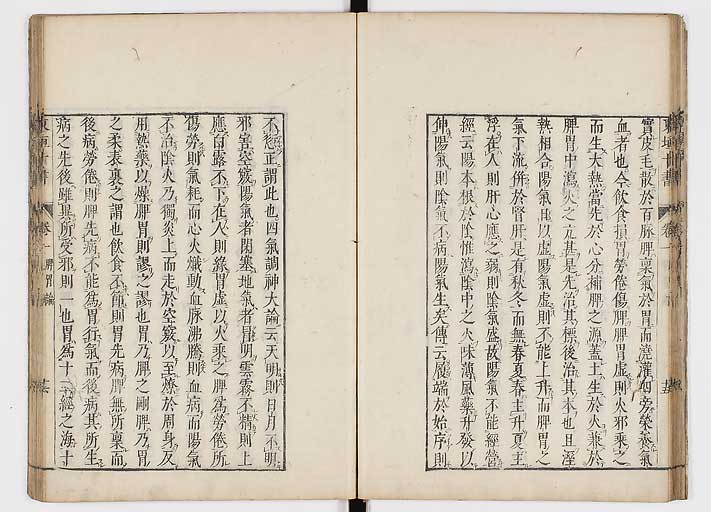 實皮毛散於百脉脾稟氣於胃而澆灌四旁榮養氣
血者也今飲食損胃勞倦傷脾脾胃虛則火邪乘之
而生大熱當先於心分補脾之源蓋土生於火兼於
脾胃中瀉火之亢甚是先治其標後治其本也且溼
熱相合陽氣日以虛陽氣虛則不能上升而脾胃之
氣下流併於腎肝是有秋冬而無春夏春主升夏主
浮在人則肝心應之弱則陰氣盛故陽氣不能經營
經云陽本根於陰惟瀉陰中之火味薄風藥升發以
伸陽氣則陰氣不病陽氣生矣傳云履端於始序則
不愆正謂此也四氣調神大論云天明則日月不明
邪害空竅陽氣者閉塞地氣者冒明雲霧不精則上
應白露不下在人則緣胃虛以火乘之脾爲勞倦所
傷勞則氣耗而心火熾動血脉沸騰則血病而陽氣
不治陰火乃獨炎上而走於空竅以至燎於周身反
用熱藥以燥脾胃則謬之謬也胃乃脾之剛脾乃胃
之柔表裏之謂也飲食不節則胃先病脾無所稟而
後病勞倦則脾先病不能爲胃行氣而後病其所生
病之先後雖異所受邪則一也胃爲十二經之海十
卷一 脾胃論